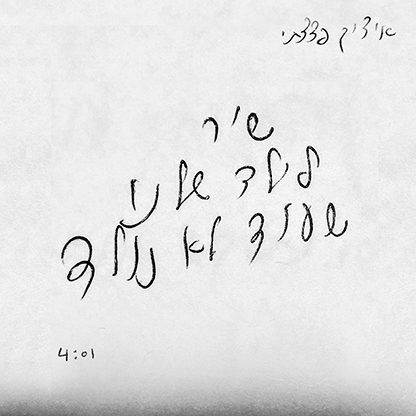 איציק פצצתי
שיר
לילד שלנו
שעוד לא נולד
4:01